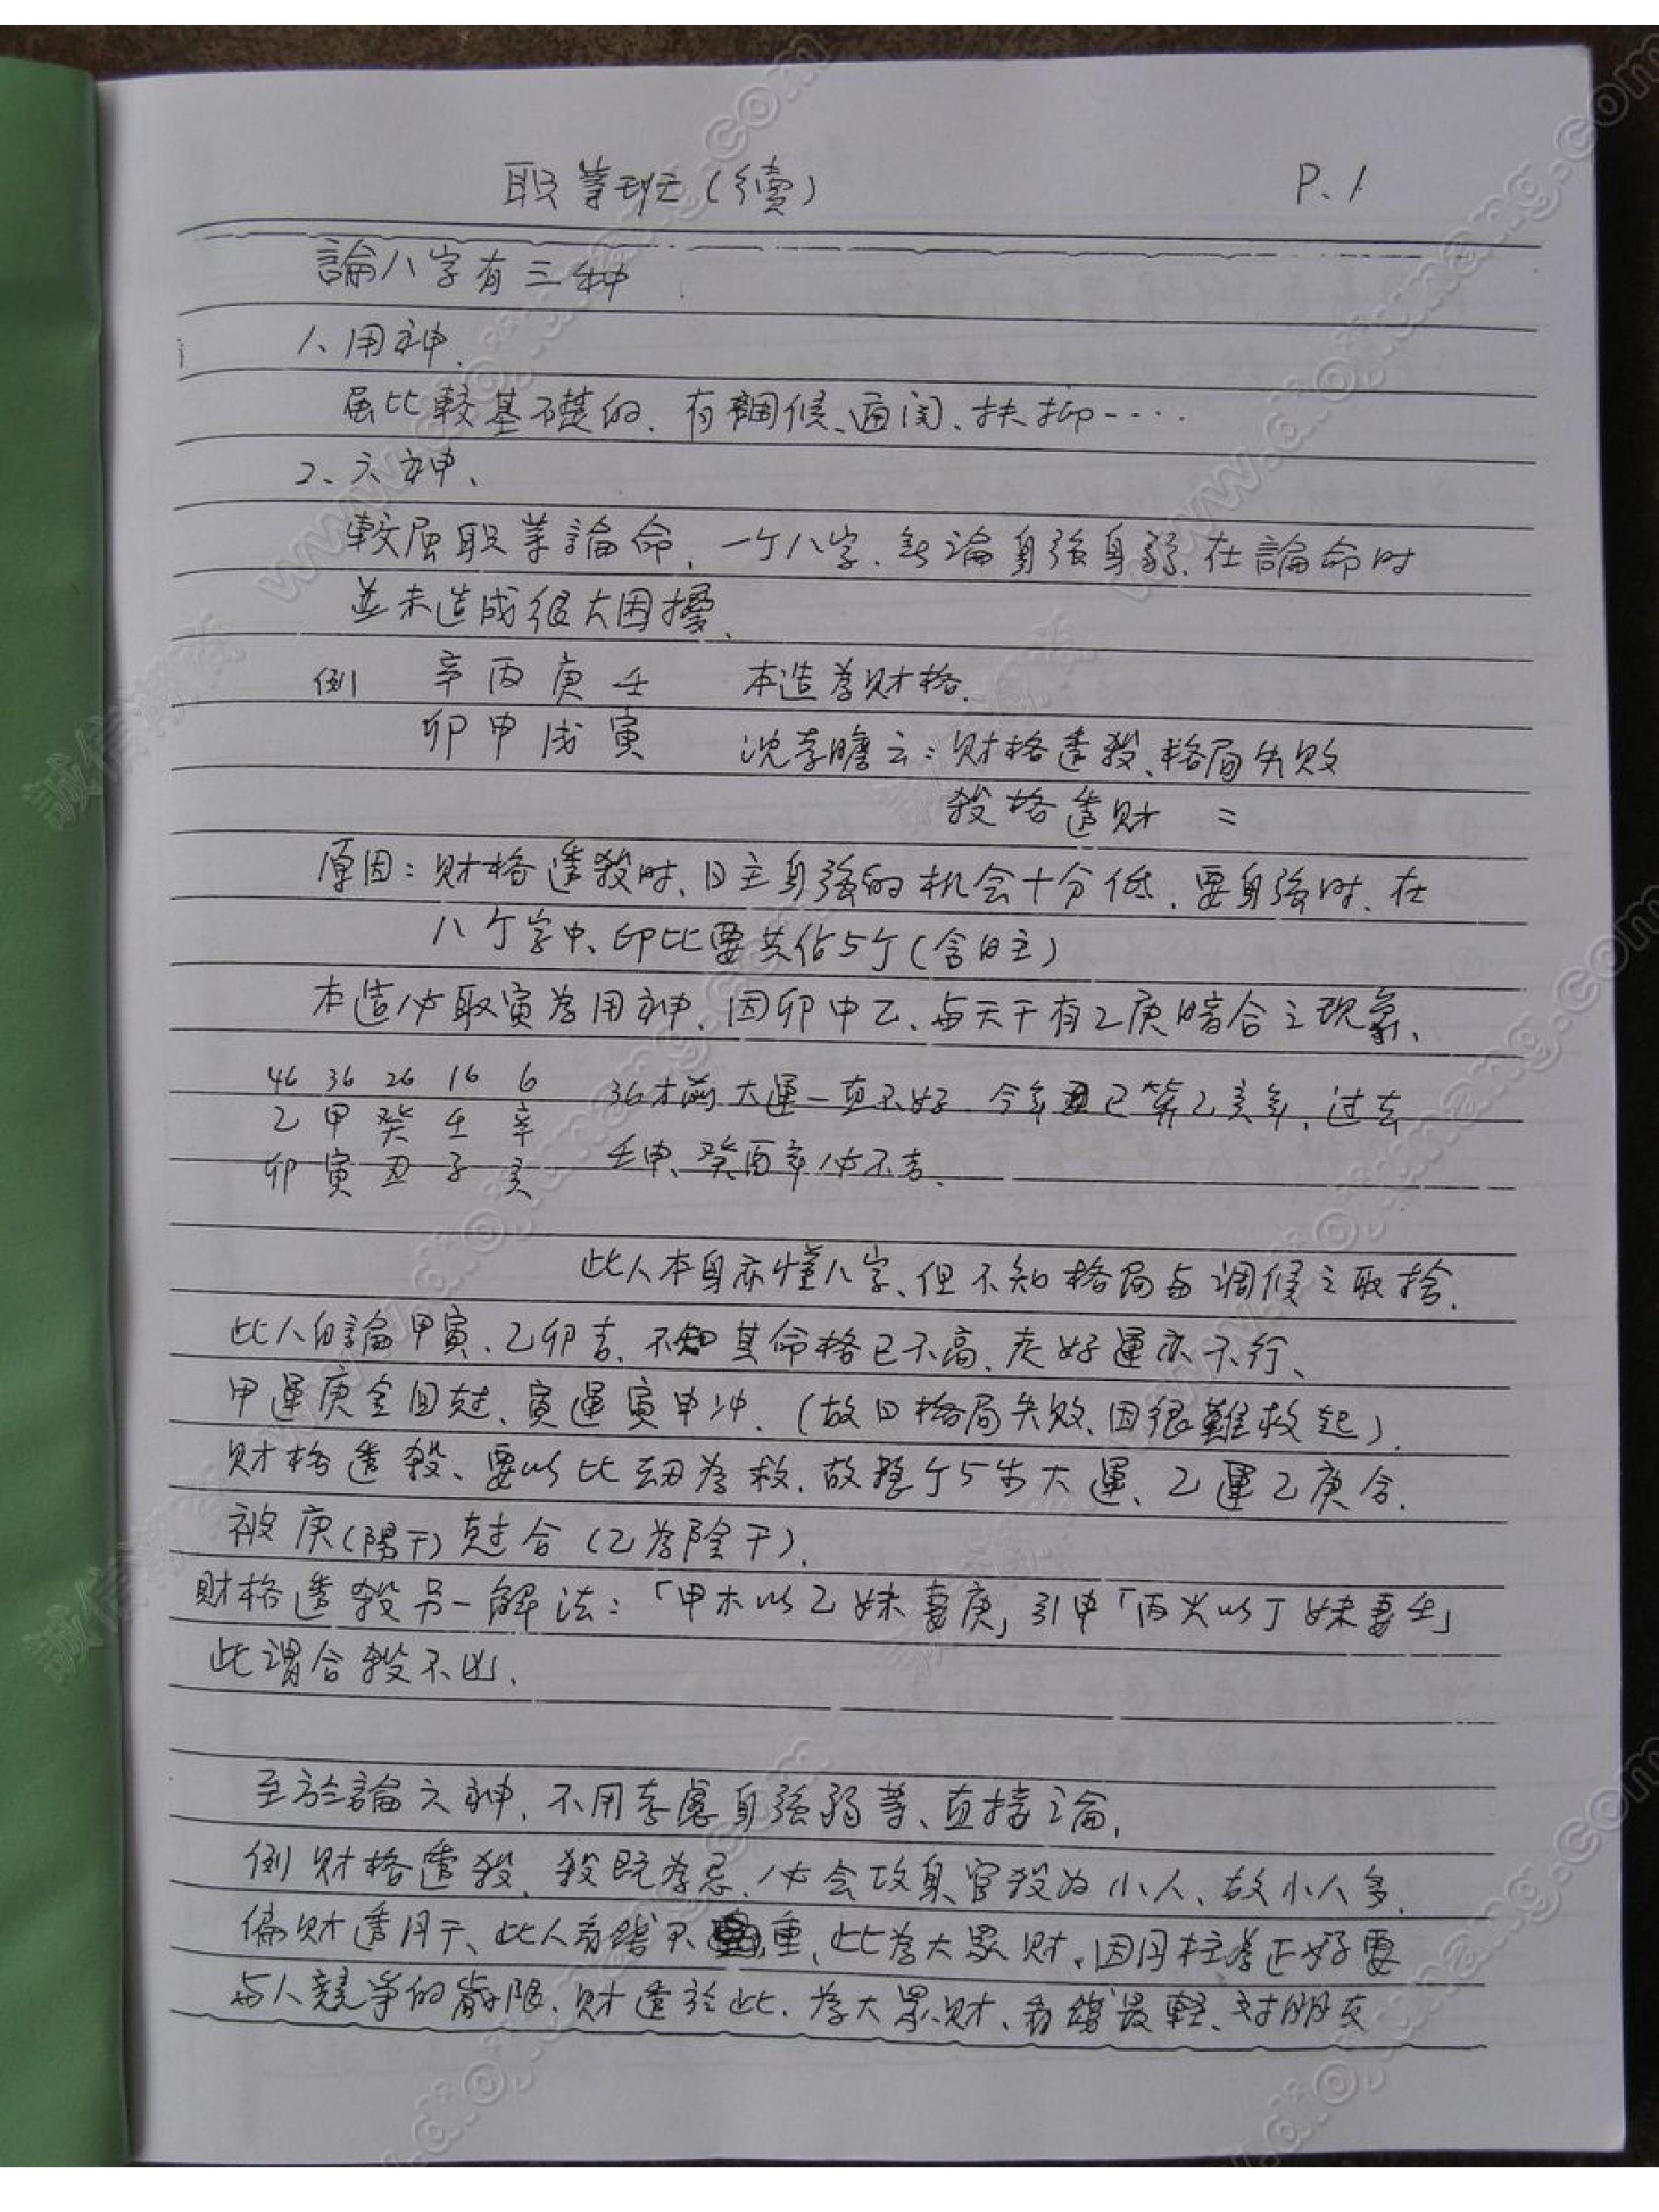 职業班(續) P.1
論八字有三种
1、用神.
屬比較基礎的、有調候、通関、扶抑……
2、六神、
較屬职業論命,一个八字、無論身強身弱、在論命时
並未造成很大困擾、
例 辛丙庚壬 本造為财格.
卯申戌寅 沈孝瞻云:财格透殺、格局失败
殺格透财 =
原因:财格透殺时、日主身強的机会十分低.要身強时、在
八个字中、印比要共佔5个(含日主)
本造必取寅為用神、因卯中乙、与天干有乙庚暗合之現象、
46 36 26 16 6 36才前大運一直不好 今年 已算乙亥年,过去
乙甲癸壬辛
卯寅丑子亥 壬申、癸酉年必不吉、
此人本身亦懂八字、但不知格局与調候之取捨.
此人自論甲寅、乙卯吉、不知其命格已不高、走好運亦不行、
甲運庚金回尅、寅運寅申冲.(故曰格局失败、因很難救起).
财格透殺、要以比刼為救.故整个5步大運、乙運乙庚合.
被庚(陽干)尅合(乙為陰干).
财格透殺另一解法:「甲木以乙妹妻庚」引申「丙火以丁妹妻壬」
此謂合殺不凶.
至於論六神,不用考慮身強弱等、直接論.
例财格透殺、殺既為忌、必会攻身官殺為小人、故小人多.
偏财透月干、此人看錢不重、此為大眾财.因月柱為正好要
与人競爭的歲限、财透於此.為大眾财、看錢最輕、对朋友
www.daojuhang.com
誠信